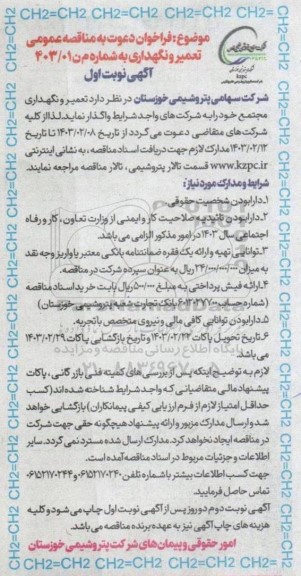 موضوع: فراخوان دعوت به مناقصه عمومی
تعمیر و نگهداری به شماره م ن ۴۰۳/۰۱
آگهی نوبت اول
شرکت سهامی پتروشیمی خوزستان در نظر دارد تعمیر و نگهداری
مجتمع خود را به شرکت های واجد شرایط واگذار نماید. لذا از کلیه
شرکت های متقاضی دعوت می گردد از تاریخ ۱۴۰۳/۰۲/۰۸ تا تاریخ
۱۴۰۳/۰۲/۱۳ مدارک لازم جهت دریافت اسناد مناقصه، به نشانی اینترنتی
www.kzpc.ir قسمت تالار پتروشیمی، تالار مناقصه مراجعه نمایند.
شرایط و مدارک مورد نیاز:
۱. دارا بودن شخصیت حقوقی
۲. دارا بودن تائیدیه صلاحیت کار و ایمنی از وزارت تعاون، کار و رفاه
اجتماعی سال ۱۴۰۳ در امور مذکور الزامی می باشد.
۳. توانایی تهیه و ارائه یک فقره ضمانتنامه بانکی معتبر یا واریز وجه نقد
به میزان ۲۴/۰۰۰/۰۰۰/۰۰۰ ریال به عنوان سپرده شرکت در مناقصه.
۴. ارائه فیش پرداختی به مبلغ ۵۰۰/۰۰۰ ریال بابت خرید اسناد مناقصه
(شماره حساب بانک تجارت شعبه پتروشیمی خوزستان)
۵. دارا بودن توانایی کافی مالی و نیروی متخصص با تجربه.
۶. تاریخ تحویل پاکات ۱۴۰۳/۰۲/۲۲ و تاریخ بازگشایی پاکات ۱۴۰۳/۰۲/۲۹
می باشد.
لازم به توضیح اینکه پس از بررسی های کمیته فنی بازرگانی، پاکات
پیشنهاد مالی متقاضیانی که واجد شرایط شناخته شده اند (کسب
حداقل امتیاز لازم از فرم ارزیابی کیفی پیمانکاران) بازگشایی خواهد
شد و ارسال مدارک مزبور و ارائه پیشنهاد هیچگونه حقی جهت شرکت
در مناقصه ایجاد نخواهد کرد. مدارک ارسال شده مسترد نمی گردد. سایر
اطلاعات و جزئیات مربوط در اسناد مناقصه آمده است.
جهت کسب اطلاعات بیشتر با شماره تلفن ۰۶۱۵۲۱۷۰۲۴۰ و ۰۶۱۵۲۱۷۰۲۴۴
تماس حاصل فرمایید.
آگهی نوبت دوم دو روز پس از آگهی نوبت اول چاپ می شود و کلیه
هزینه های چاپ آگهی نیز به عهده برنده مناقصه می باشد.
امور حقوقی و پیمان های شرکت پتروشیمی خوزستان